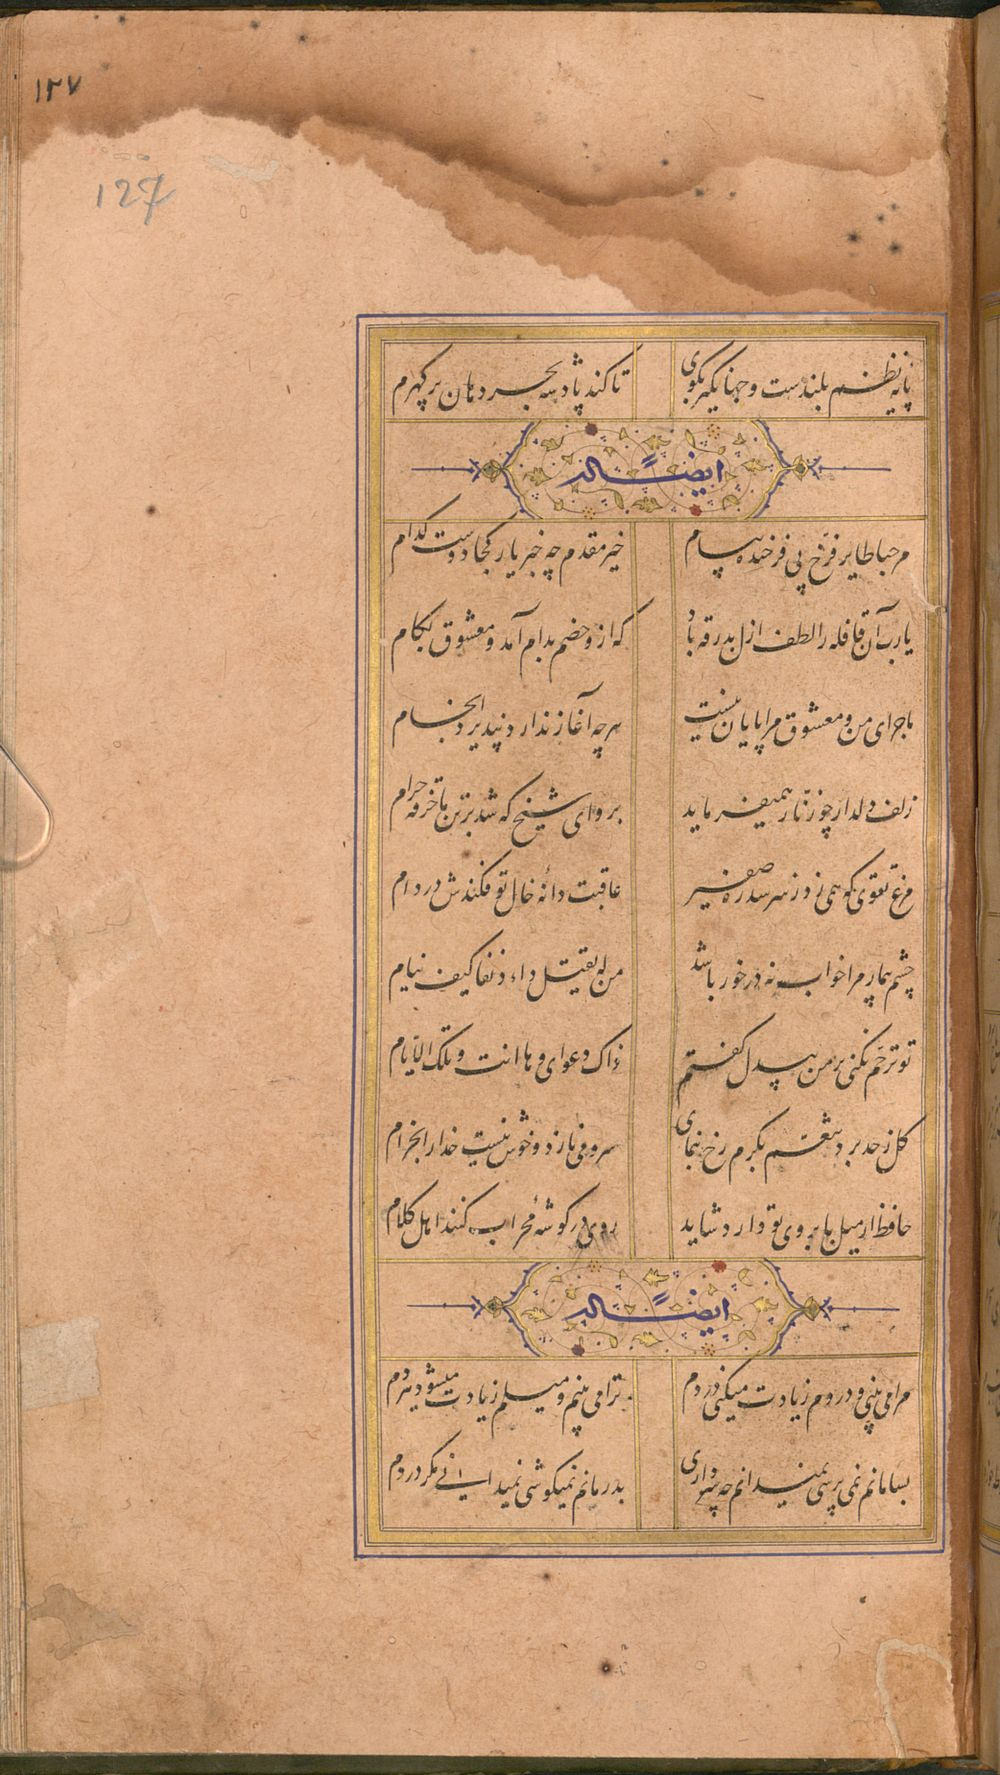 ۱۲۷
127
پایه نظم بلندست و جهانگیر بگوی تا کند پادشه بحر دهان پر گهرم
ایضاً له
مرحبا طایر فرخ پی فرخنده پیام خیر مقدم چه خبر یار کجا دوست کدام
یارب آن قافله را لطف ازل بدرقه باد که ازو خصم بدام آمد و معشوق بکام
ماجرای من و معشوق مرا پایان نیست هرچه آغاز ندارد نپذیرد انجام
زلف دلدار چو زنار همیفرماید برو ای شیخ که شد برتن ما خرقه حرام
مرغ تقوی که همی زد ز سر سدره صفیر عاقبت دانه خال تو فکندش در دام
چشم بیمار مرا خواب نه درخور باشد من له یقتل داء دنفا کیف ینام
تو ترحم نکنی بر من بیدل گفتم ذاک دعوای و ها انت و تلک الایام
گل ز حد برد تنعم بکرم رخ بنمای سرو می نازد و خوش نیست خدا را بخرام
حافظ ار میل بابروی تو دارد شاید روی در گوشه محراب کنند اهل کلام
ایضاً له
مرا می بینی و دردم زیادت میکنی دردم ترا می بینم و میلم زیادت میشود هردم
بسامانم نمی پرسی نمیدانم چه سر داری بدرمانم نمیکوشی نمیدانی مگر دردم